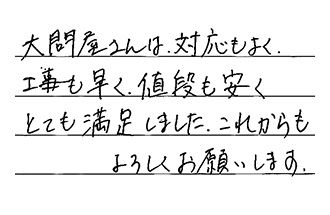 大問屋さんは、対応もよく、
工事も早く、値段も安く
とても満足しました。これからも
よろしくお願いします。